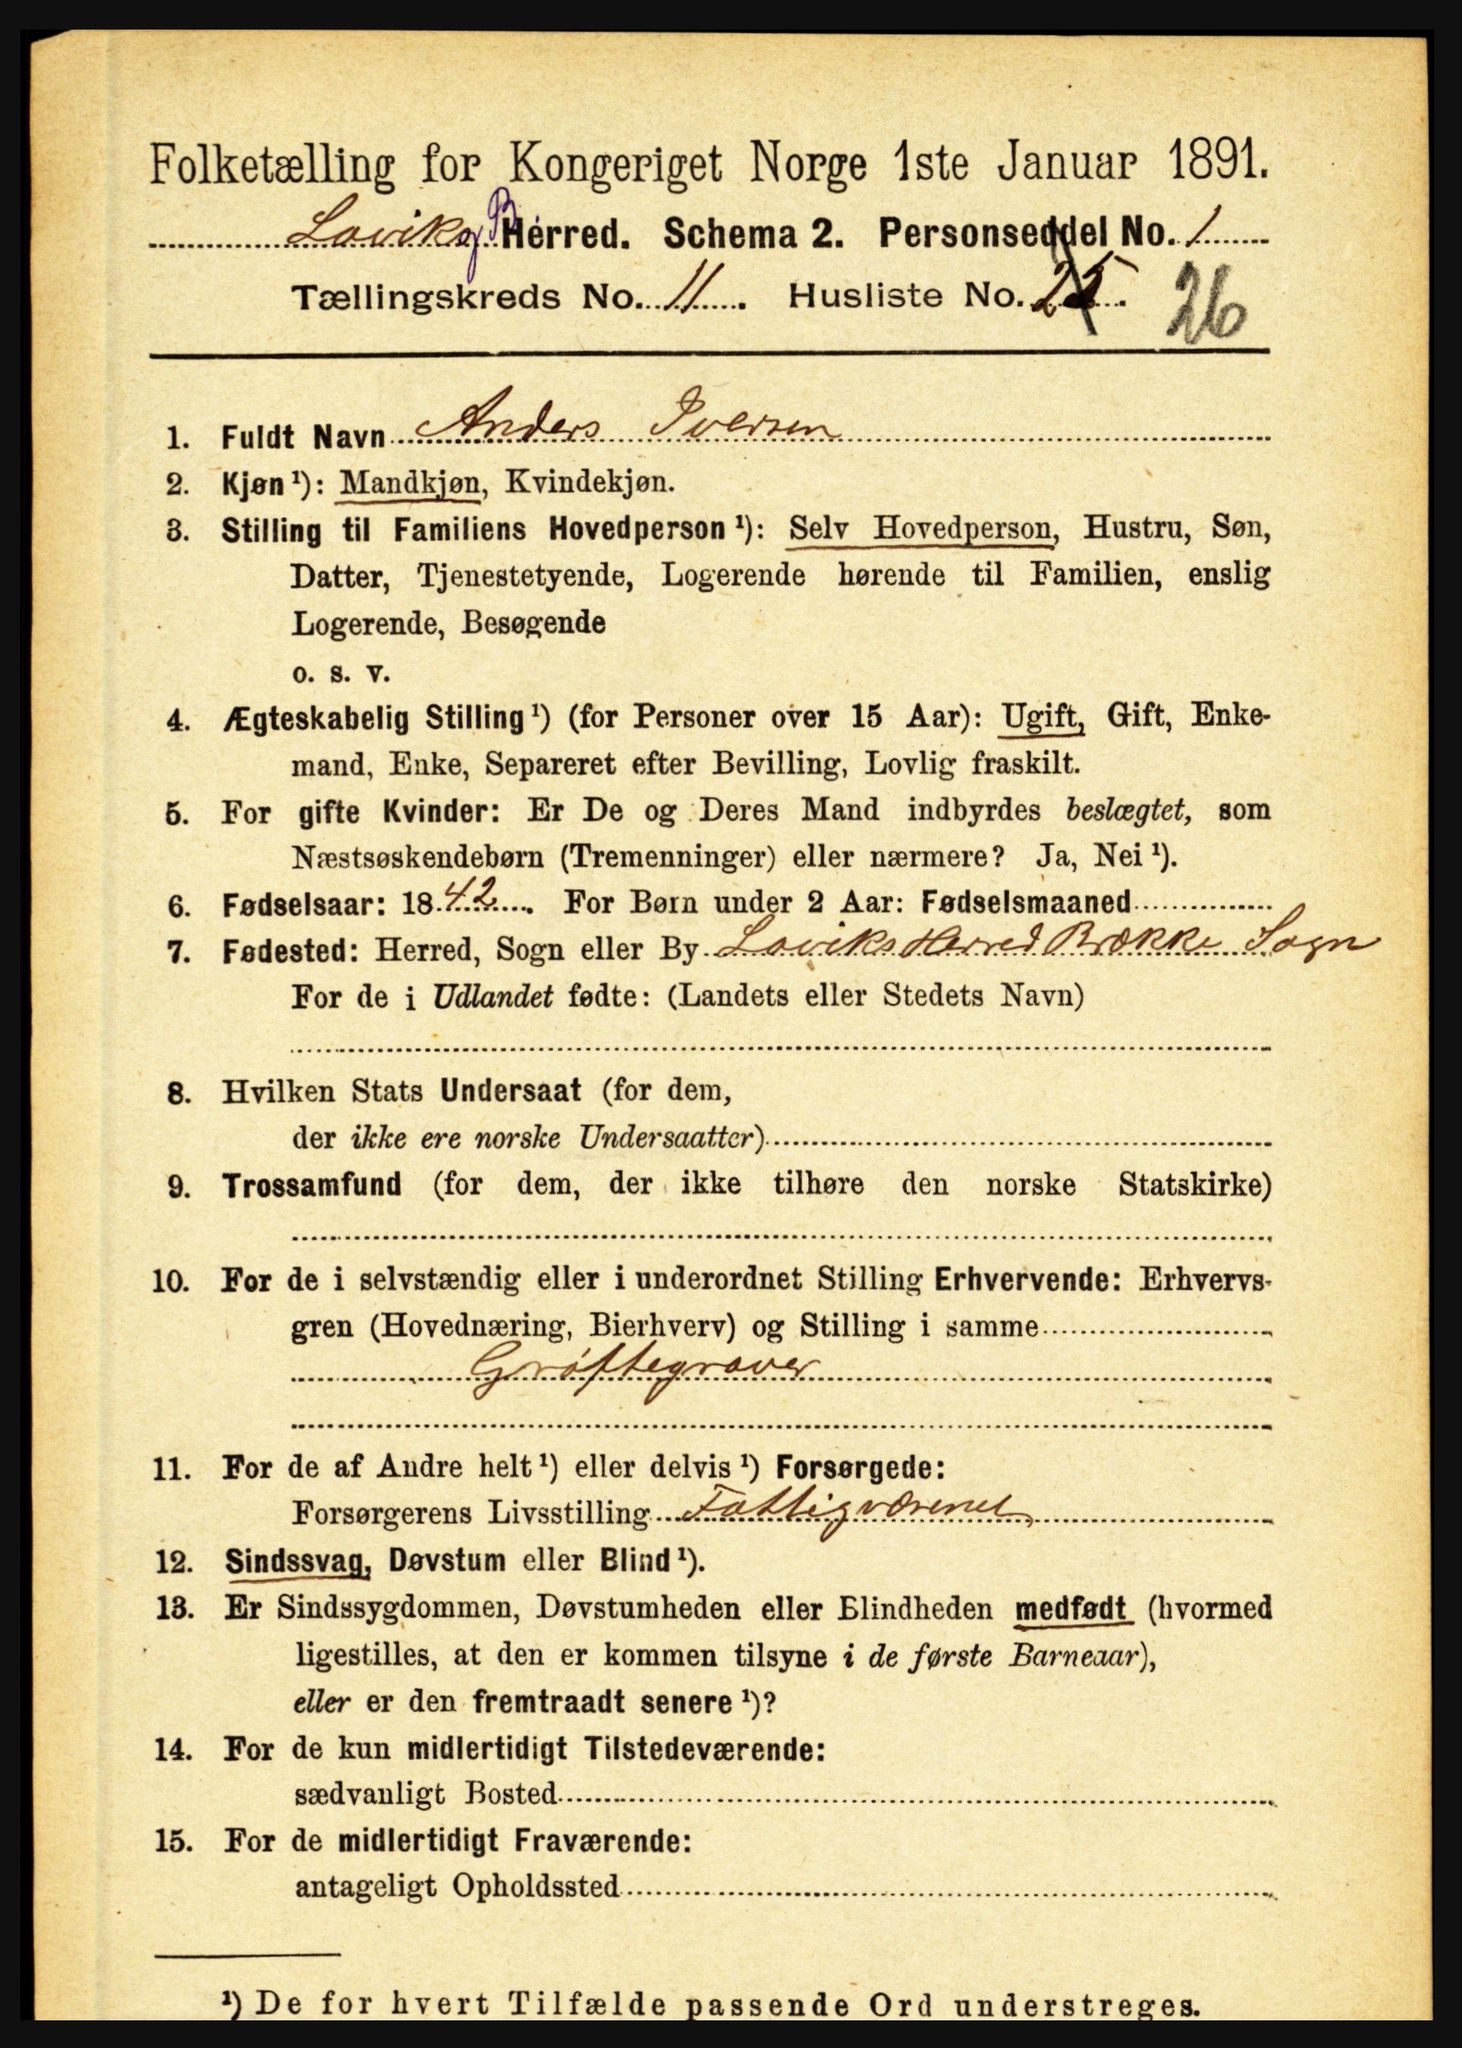 Folketælling for Kongeriget Norge 1ste Januar 1891.
Lavik og B. Herred. Schema 2. Personseddel No. 1
Tællingskreds No. 11. Husliste No. 25. 26
1. Fuldt Navn Anders Iversen
2. Kjøn ¹): Mandkjøn, Kvindekjøn.
3. Stilling til Familiens Hovedperson ¹): Selv Hovedperson, Hustru, Søn,
Datter, Tjenestetyende, Logerende hørende til Familien, enslig
Logerende, Besøgende
o. s. v.
4. Ægteskabelig Stilling ¹) (for Personer over 15 Aar): Ugift, Gift, Enke-
mand, Enke, Separeret efter Bevilling, Lovlig fraskilt.
5. For gifte Kvinder: Er De og Deres Mand indbyrdes beslægtet, som
Næstsøskendebørn (Tremenninger) eller nærmere? Ja, Nei ¹).
6. Fødselsaar: 1842. For Børn under 2 Aar: Fødselsmaaned
7. Fødested: Herred, Sogn eller By Laviks Herred Brække Sogn
For de i Udlandet fødte: (Landets eller Stedets Navn)
8. Hvilken Stats Undersaat (for dem,
der ikke ere norske Undersaatter)
9. Trossamfund (for dem, der ikke tilhøre den norske Statskirke)
10. For de i selvstændig eller i underordnet Stilling Erhvervende: Erhvervs-
gren (Hovednæring, Bierhverv) og Stilling i samme
Grøftegraver
11. For de af Andre helt ¹) eller delvis ¹) Forsørgede:
Forsørgerens Livsstilling Fattigvæsenet
12. Sindssvag, Døvstum eller Blind ¹).
13. Er Sindssygdommen, Døvstumheden eller Blindheden medfødt (hvormed
ligestilles, at den er kommen tilsyne i de første Barneaar),
eller er den fremtraadt senere ¹)?
14. For de kun midlertidigt Tilstedeværende:
sædvanligt Bosted
15. For de midlertidigt Fraværende:
antageligt Opholdssted
¹) De for hvert Tilfælde passende Ord understreges.